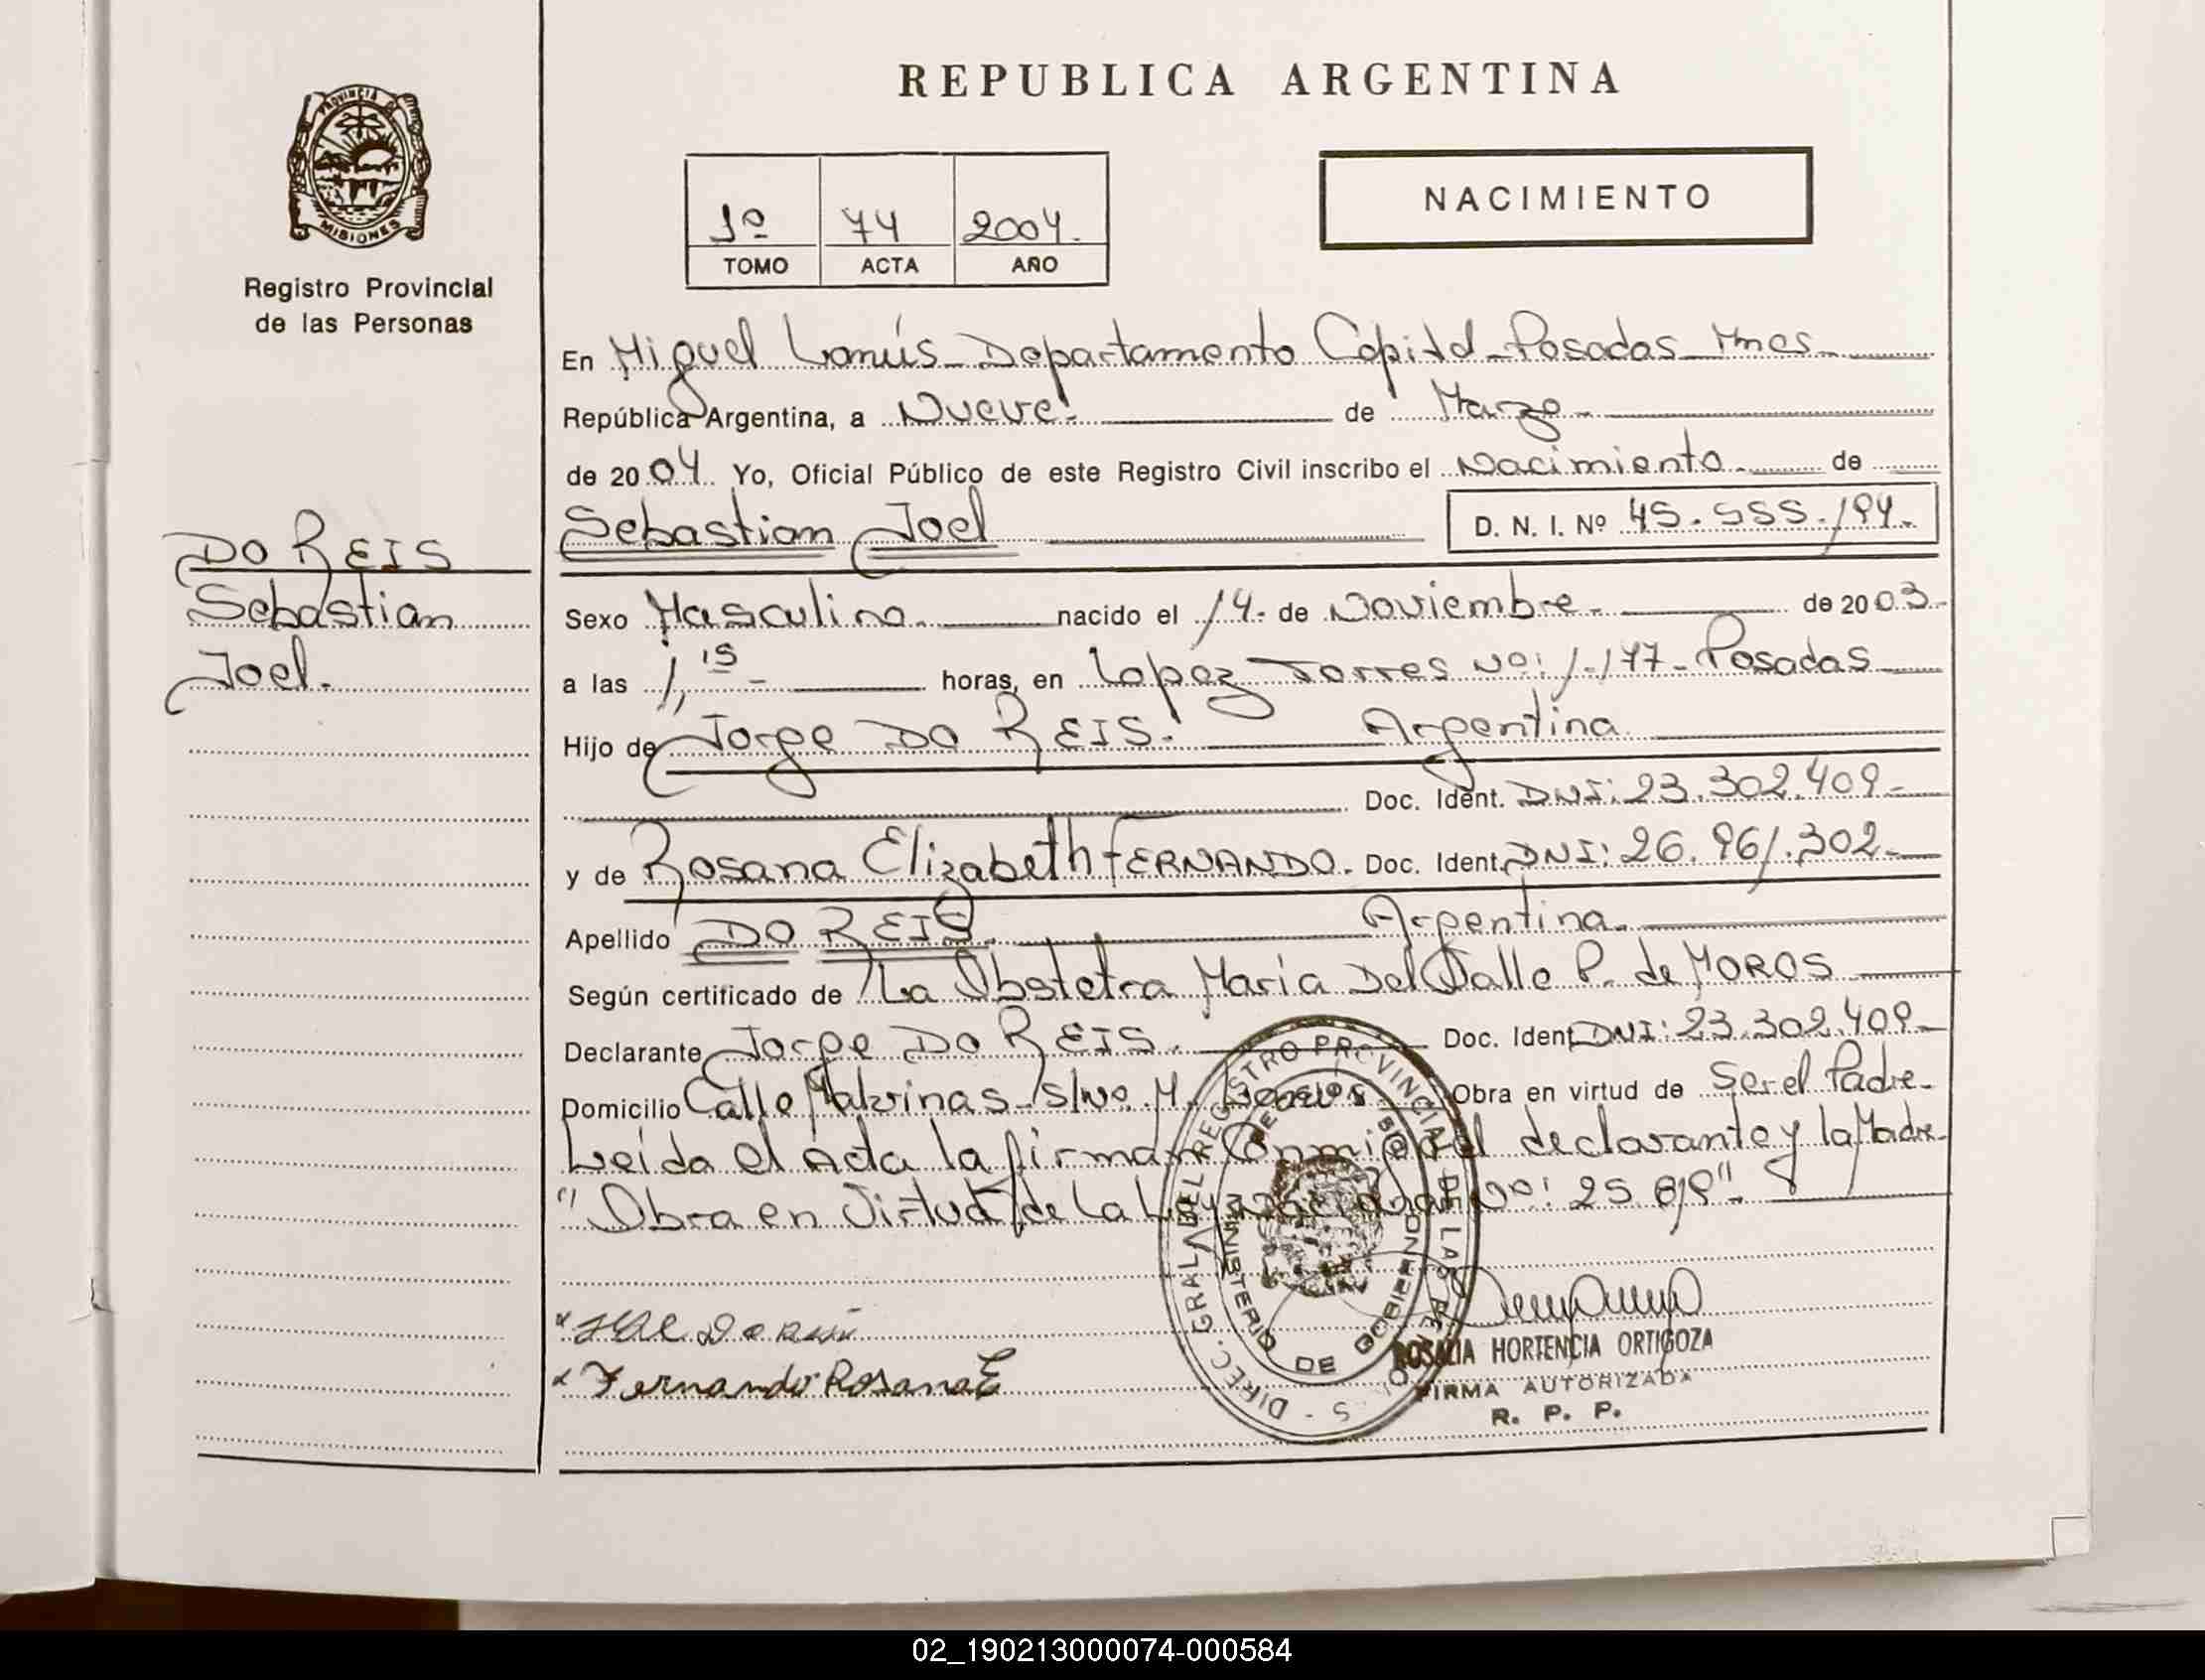 REPUBLICA ARGENTINA
PROVINCIA DE
MISIONES
Registro Provincial
de las Personas
1º 74 2004.
TOMO ACTA AÑO
NACIMIENTO
En Miguel Lanús - Departamento Capital - Posadas - Mnes.
República Argentina, a Nueve. de Marzo.
de 2004. Yo, Oficial Público de este Registro Civil inscribo el Nacimiento. de
Sebastian Joel D. N. I. Nº 45.555.194.
DO REIS
Sebastian
Joel.
Sexo Masculino. nacido el 14. de Noviembre. de 2003.
a las 1,15 - horas, en Lopez Torres Nº: 1.177 - Posadas
Hijo de Jorge DO REIS. Argentina.
Doc. Ident. DNI: 23.302.409.
y de Rosana Elizabeth FERNANDO. Doc. Ident. DNI: 26.961.302.
Apellido DO REIS. Argentina.
Según certificado de La Obstetra María Del Valle P. de MOROS
Declarante Jorge DO REIS. Doc. Ident. DNI: 23.302.409.
Domicilio Calle Malvinas - S/Nº. M. Lanús Obra en virtud de Ser el Padre.
Leída el Acta la firman Conmigo el declarante y la Madre.
"Obra en Virtud de La Ley Nacional Nº: 25.819".
Fernando Rosana E
DIREC. GRAL. DEL REGISTRO PROVINCIAL DE LAS PERSONAS
MINISTERIO DE GOBIERNO
ROSALIA HORTENCIA ORTIGOZA
FIRMA AUTORIZADA
R. P. P.
02_190213000074-000584